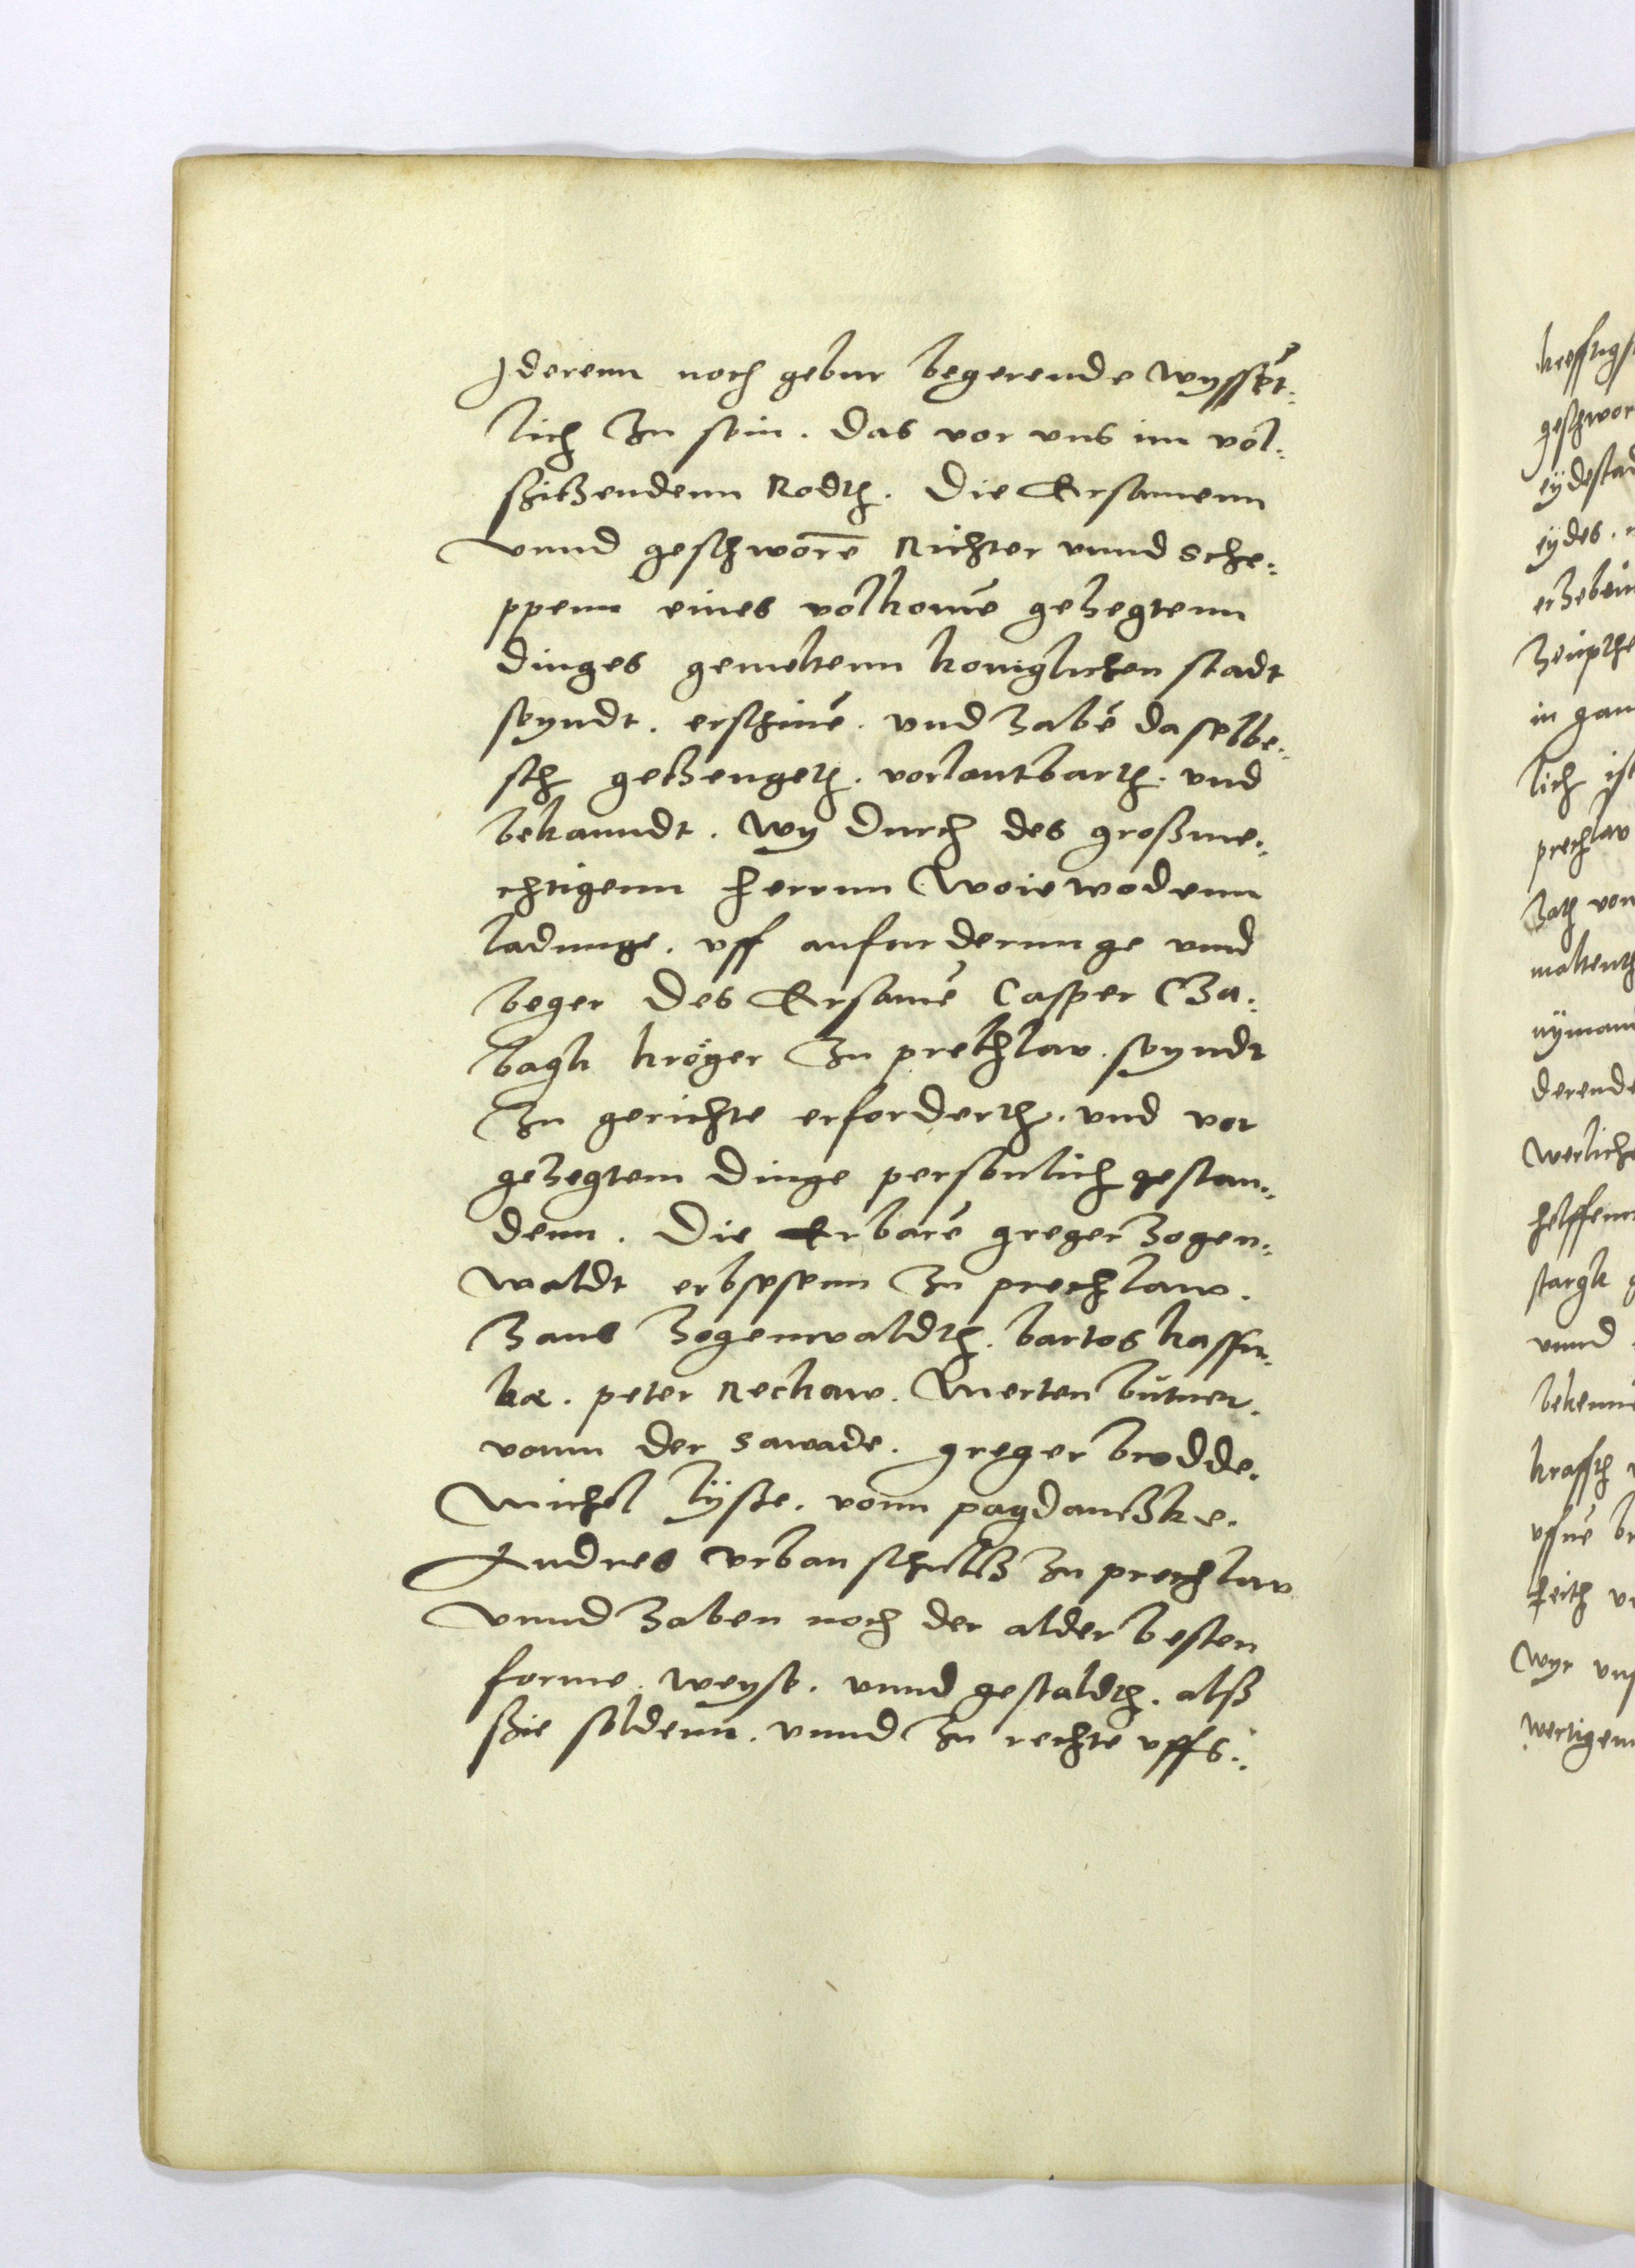 Jderenn noch gebur begerende wyssēt⸗
lich zu sein. das vor vns im vol⸗
sitzendenn Rodth. Die Ersamenn
vnnd geschworē Richter vnnd sche⸗
ppenn eines volkomē gehegtenn
dinges gemeltenn koniglichen stadt
seyndt. erschinē. vnd habē daselbe⸗
sth getzengeth. vorlautbarth. vnd
bekanndt. wy durch des großme⸗
chtigenn herrnn Woiewodenn
ladunge. vff anfurderunge vnnd
beger des Ersamē Casper Cza⸗
bagk kröger zu prechlav. seyndt
zu gerichte erforderth. vnd vor
gehegtem dinge personlich gestan⸗
denn. Die Erbarē greger hogen⸗
waldt erbsesenn zu prechlaw.
hans hogenwaldth. bartos kassu⸗
ka. peter Reckaw. Merten bütner.
vonn der sawade. greger brodde.
Michel lÿße. vonn pagdantzke.
Andres vrban schultz zu prechlav
vnnd haben noch der alder besten
forme. weyse. vnnd gestaldth. alß
ßie soldenn. vnnd zu rechte vffs⸗
geschwor
eÿdesta
eÿdes.
in gan
lich ist
prechlav
hath von
nÿman
derende
werliche
helffenn
stargk
vnnd
bekenn
krafft
wyr vns
wertigenn